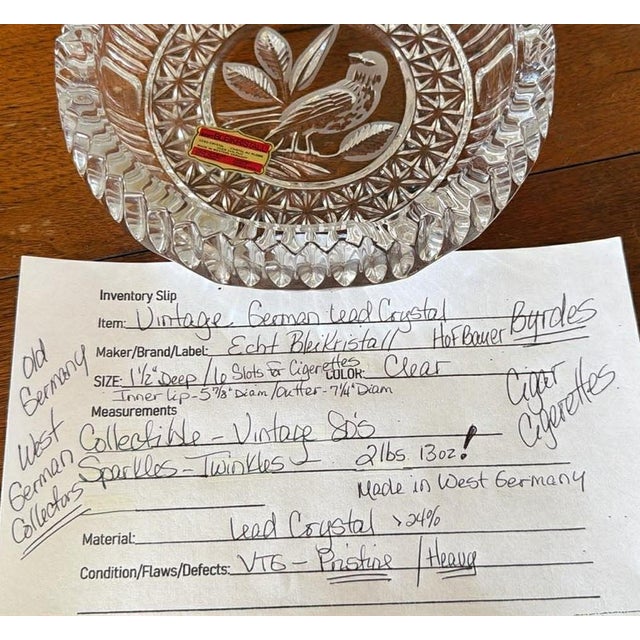 BLEIKRISTALL
Inventory Slip
Item: Vintage German Lead Crystal
Maker/Brand/Label: Echt Bleikristall Hofbauer Byrdes
SIZE: 1½" Deep / 6 Slots for Cigerettes COLOR: Clear
Inner Lip - 5⅞" Diam / Outter - 7¼" Diam
Measurements
Collectible - Vintage 80's
Sparkles - Twinkles - 2 lbs. 13 oz!
Made in West Germany
Material: Lead Crystal >24%
Condition/Flaws/Defects: VTG - Pristine / Heavy
Old
Germany
West
German
Collectors
Cigar
Cigerettes